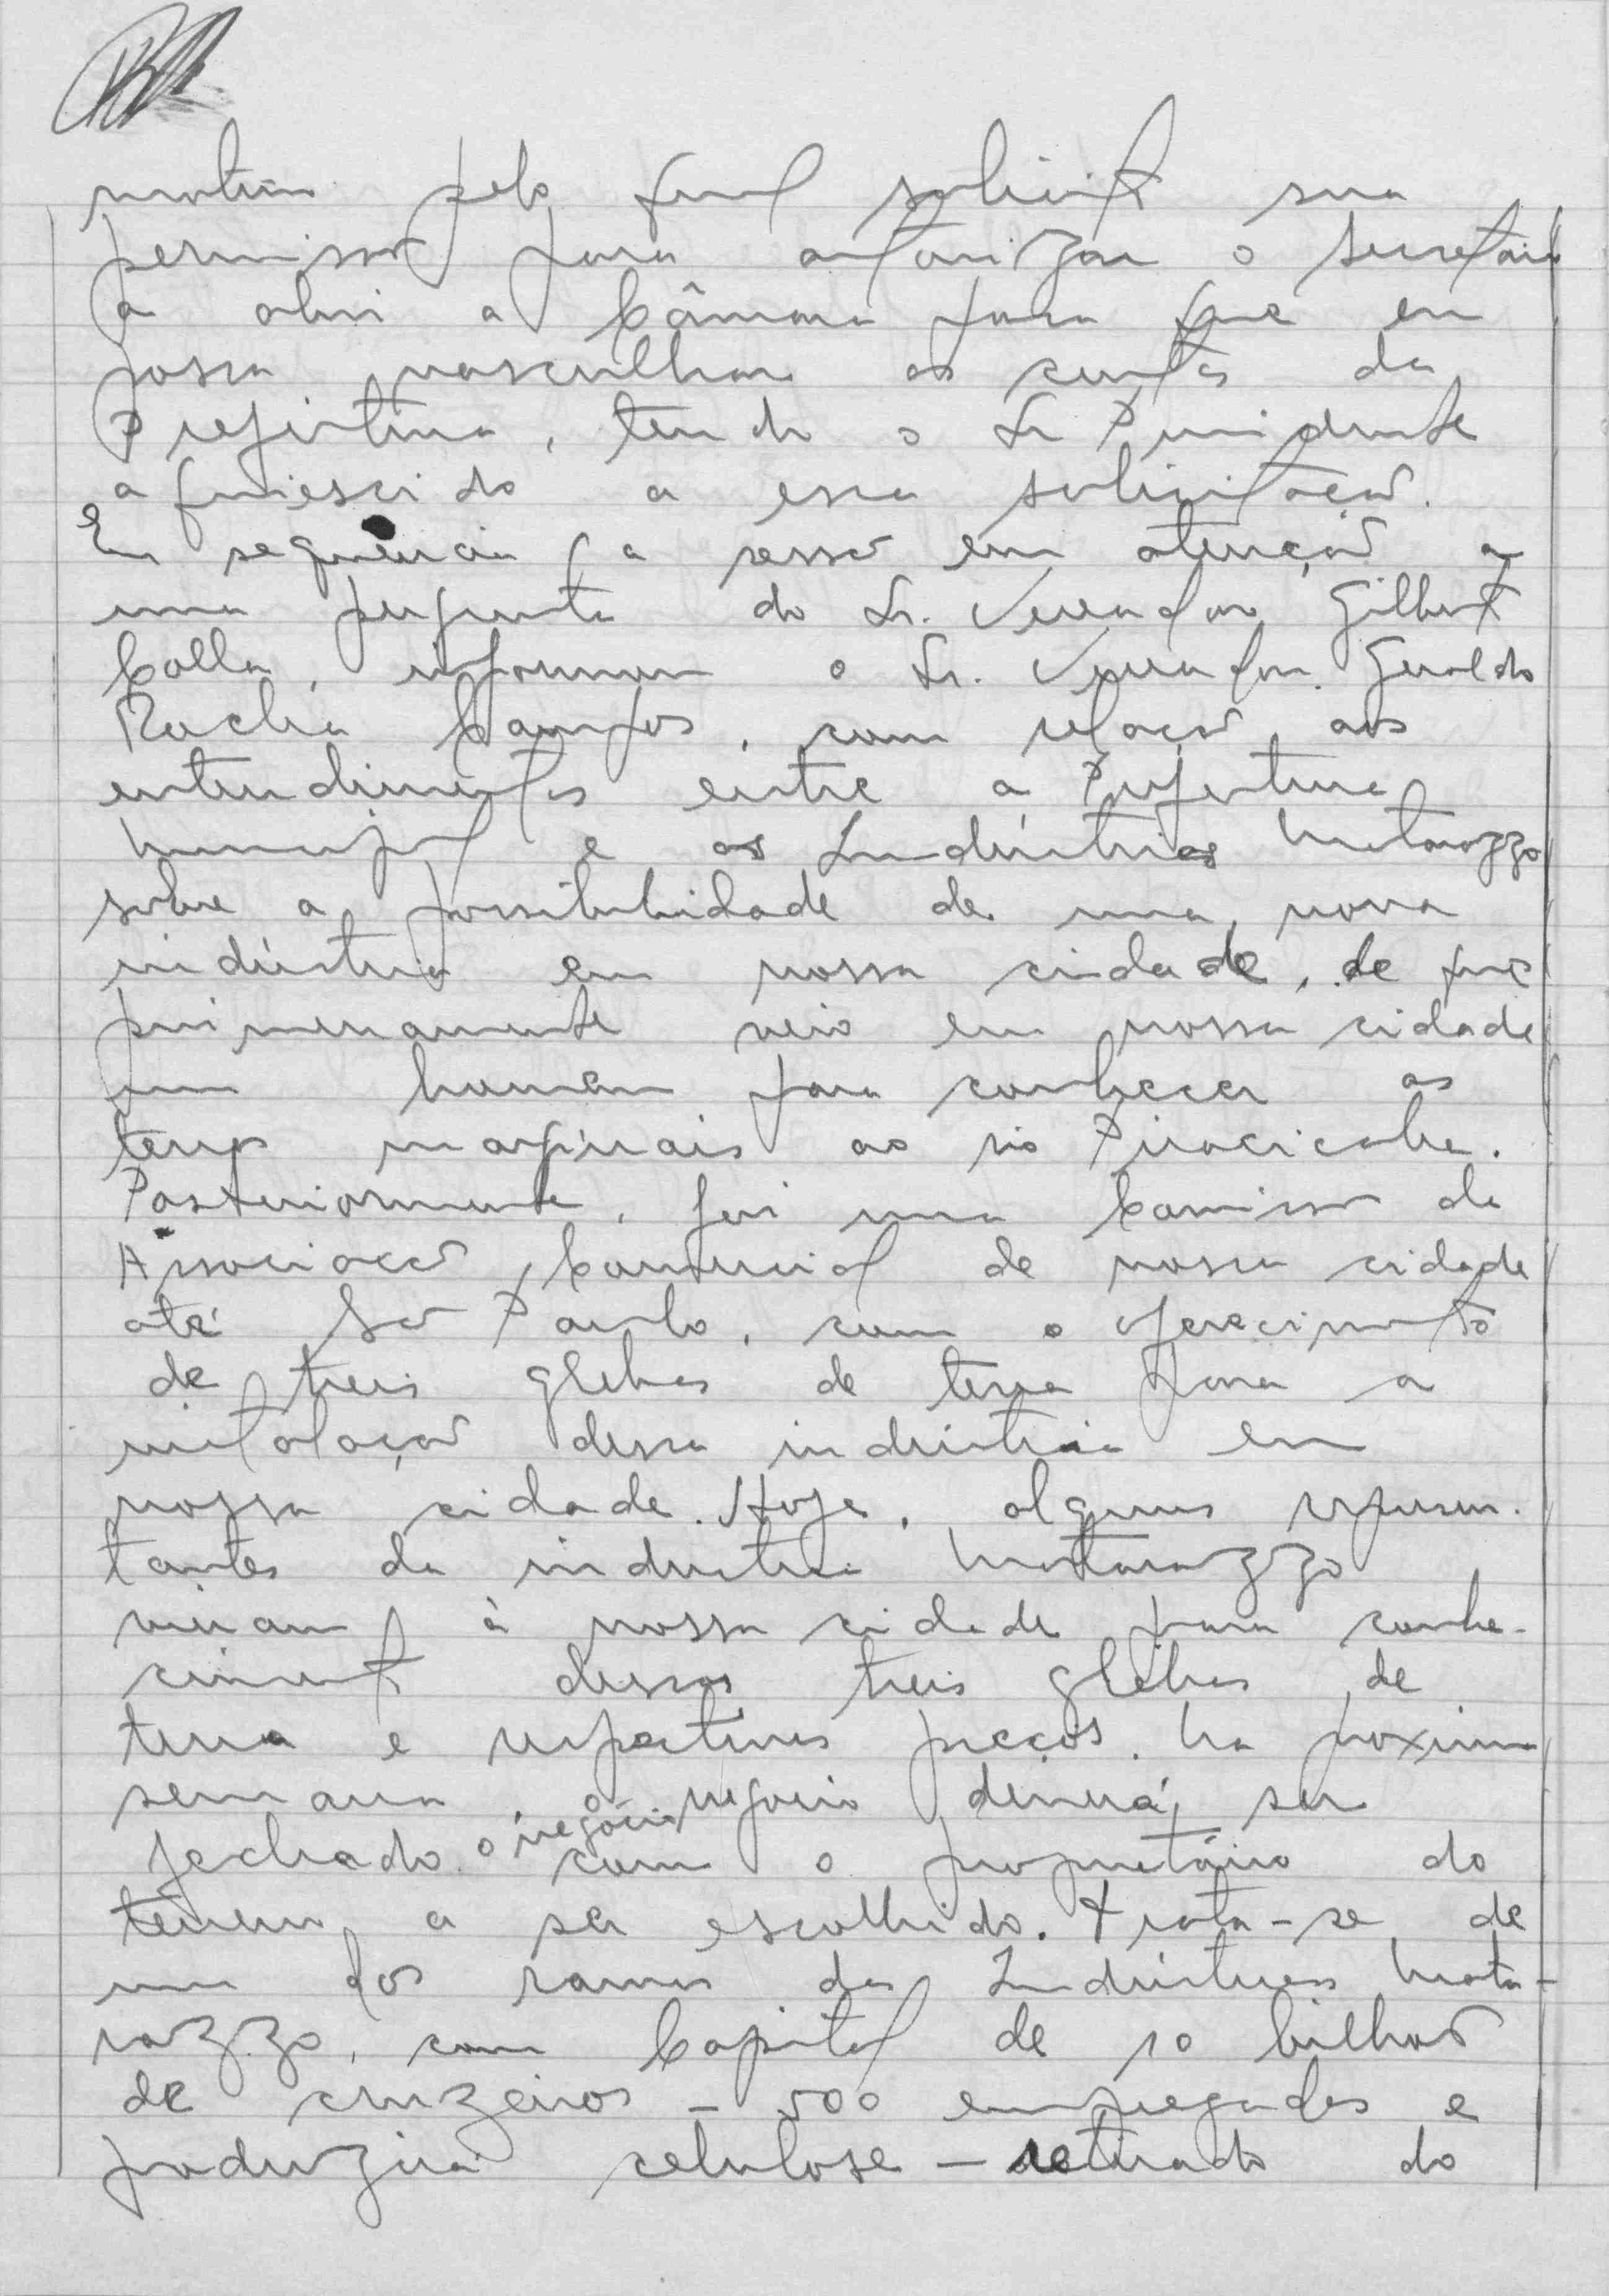 motivo pelo qual solicita sua
permissão para autorizar o secretário
a abrir a Câmara para que eu
possa vasculhar as contas da
Prefeitura, tendo o Sr Presidente
aquiescido a essa solicitação.
Em sequência a sessão em atenção a
uma pergunta do Sr. Vereador Gilberto
Colla, informou o Sr. Vereador Geraldo
Rocha Campos, com relação aos
entendimentos entre a Prefeitura
Municipal e as Indústrias Matarazzo
sobre a possibilidade de uma nova
indústria em nossa cidade, de que
primeiramente veio em nossa cidade
um homem para conhecer as
terras marginais ao rio Piracicaba.
Posteriormente, foi uma Comissão da
Associação Comercial de nossa cidade
até São Paulo, com o oferecimento
de treis glebas de terra para a
instalação dessa indústria em
nossa cidade. Hoje, alguns represen-
tantes da industria Matarazzo
viriam à nossa cidade para conhe-
cimento dessas treis glebas de
terra e respectivos preços. Na proxima
semana, o negocio deverá ser
fechado o negócio com o proprietário do
terreno a ser escolhido. Trata-se de
um dos ramos das Indústrias Mata-
razzo, com Capital de 10 bilhões
de cruzeiros - 500 empregados e
produzirá celulose - retirado do